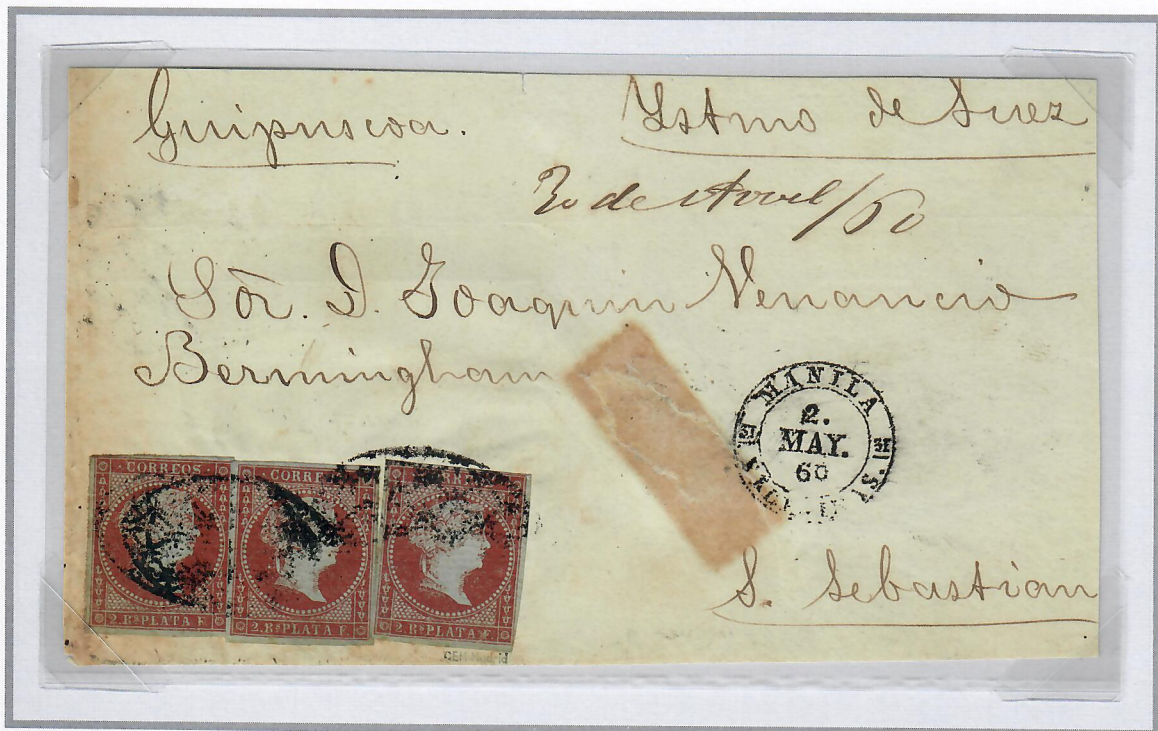 Guipuscoa.
Ystmo de Suez
20 de Avril/60
Sōr. D. Joaquin Venancio
Bermingham
MANILA
2.
MAY.
60
ISLAS FILIPINAS
S. Sebastian
CORREOS
2 Rs PLATA F.
CORREOS
2. Rs PLATA F.
CORREOS
2 Rs PLATA F.